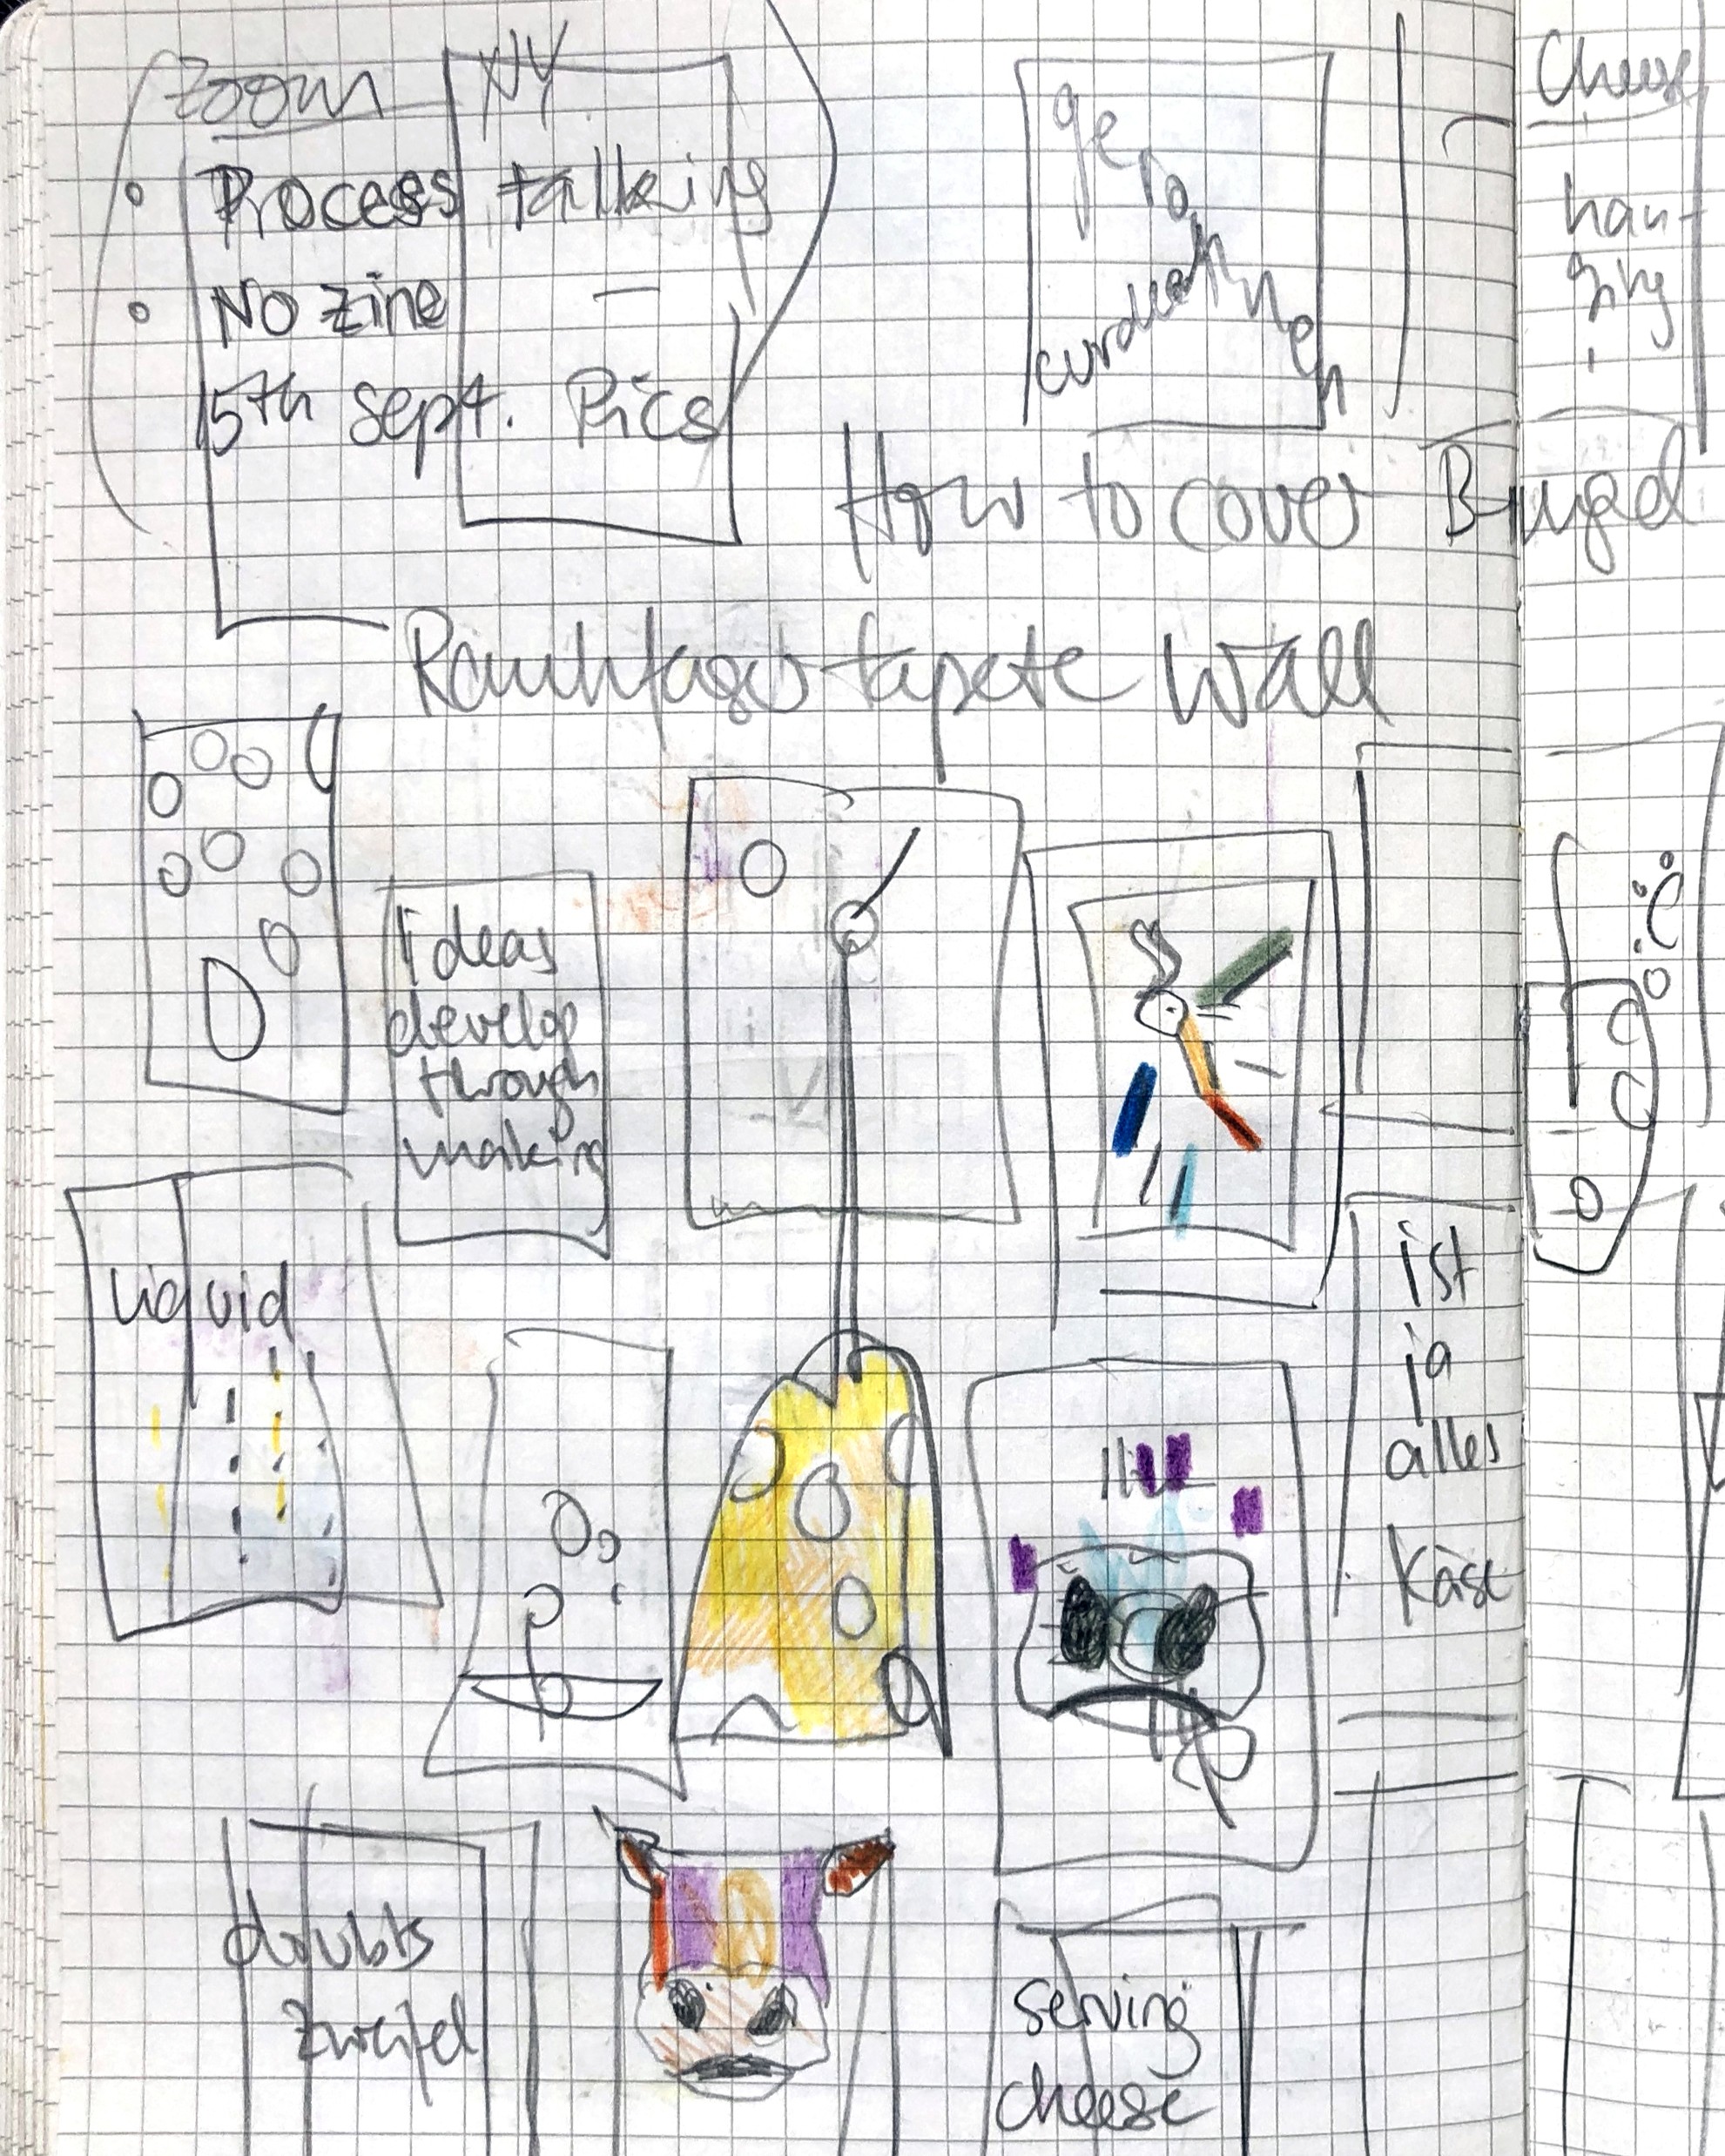 Zoom
NY
Process talking
No zine –
15th Sept. Pics
geronnen
curdled
Cheese
han-
ging
How to cover
Rauhfasertapete Wall
Ideas
develop
through
making
Liquid
ist
ja
alles
Käse
doubts
Zweifel
serving
cheese